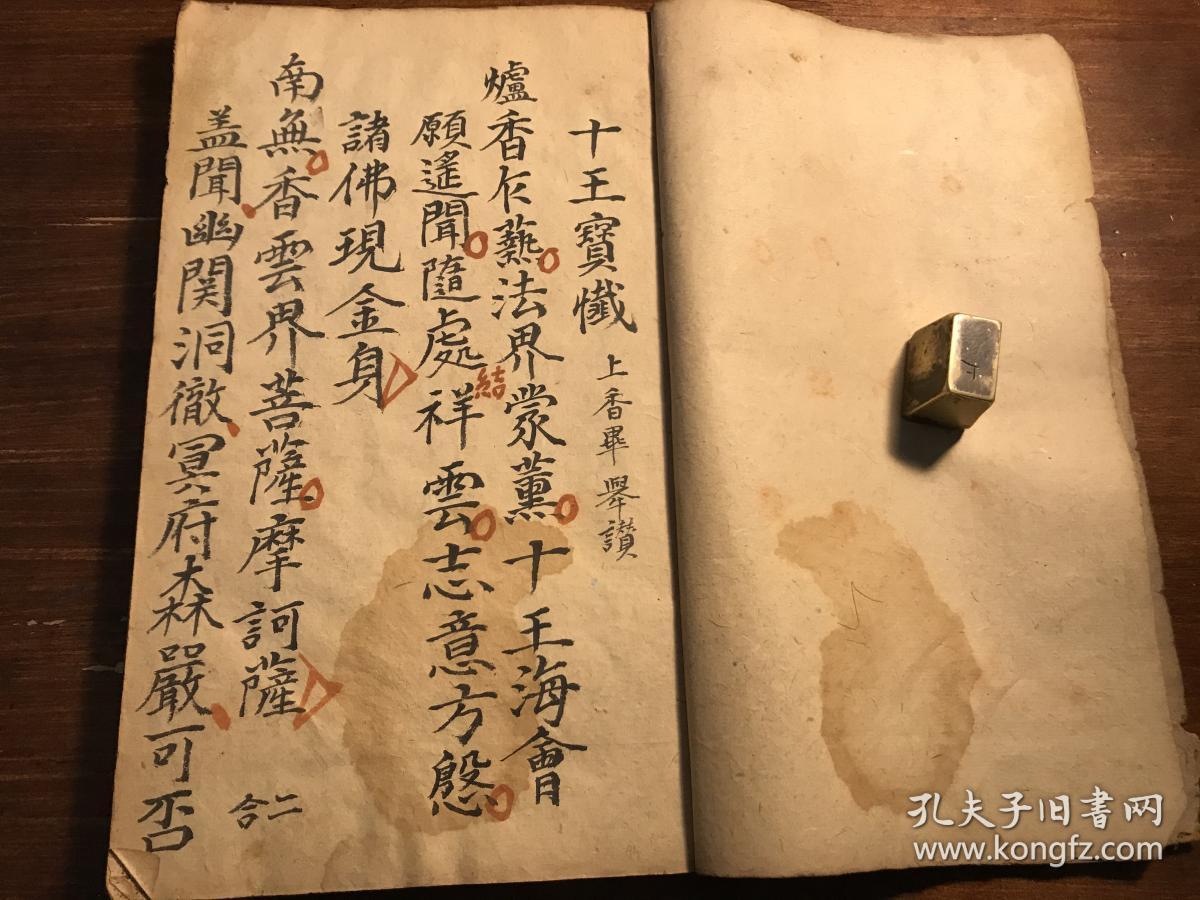 十王寶懺 上香畢舉讚
爐香乍爇法界蒙薰十王海會
願遙聞隨處結祥雲志意方慇
諸佛現金身
南無香雲界菩薩摩訶薩 二合
盖聞幽関洞徹冥府森嚴可否
孔夫子旧书网
www.kongfz.com